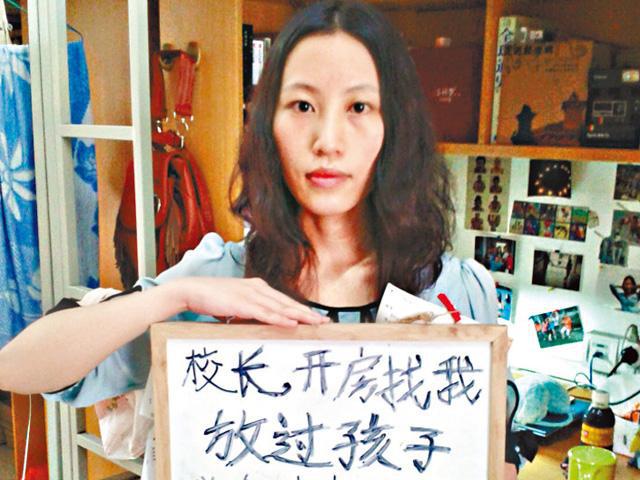 校长,开房找我
放过孩子